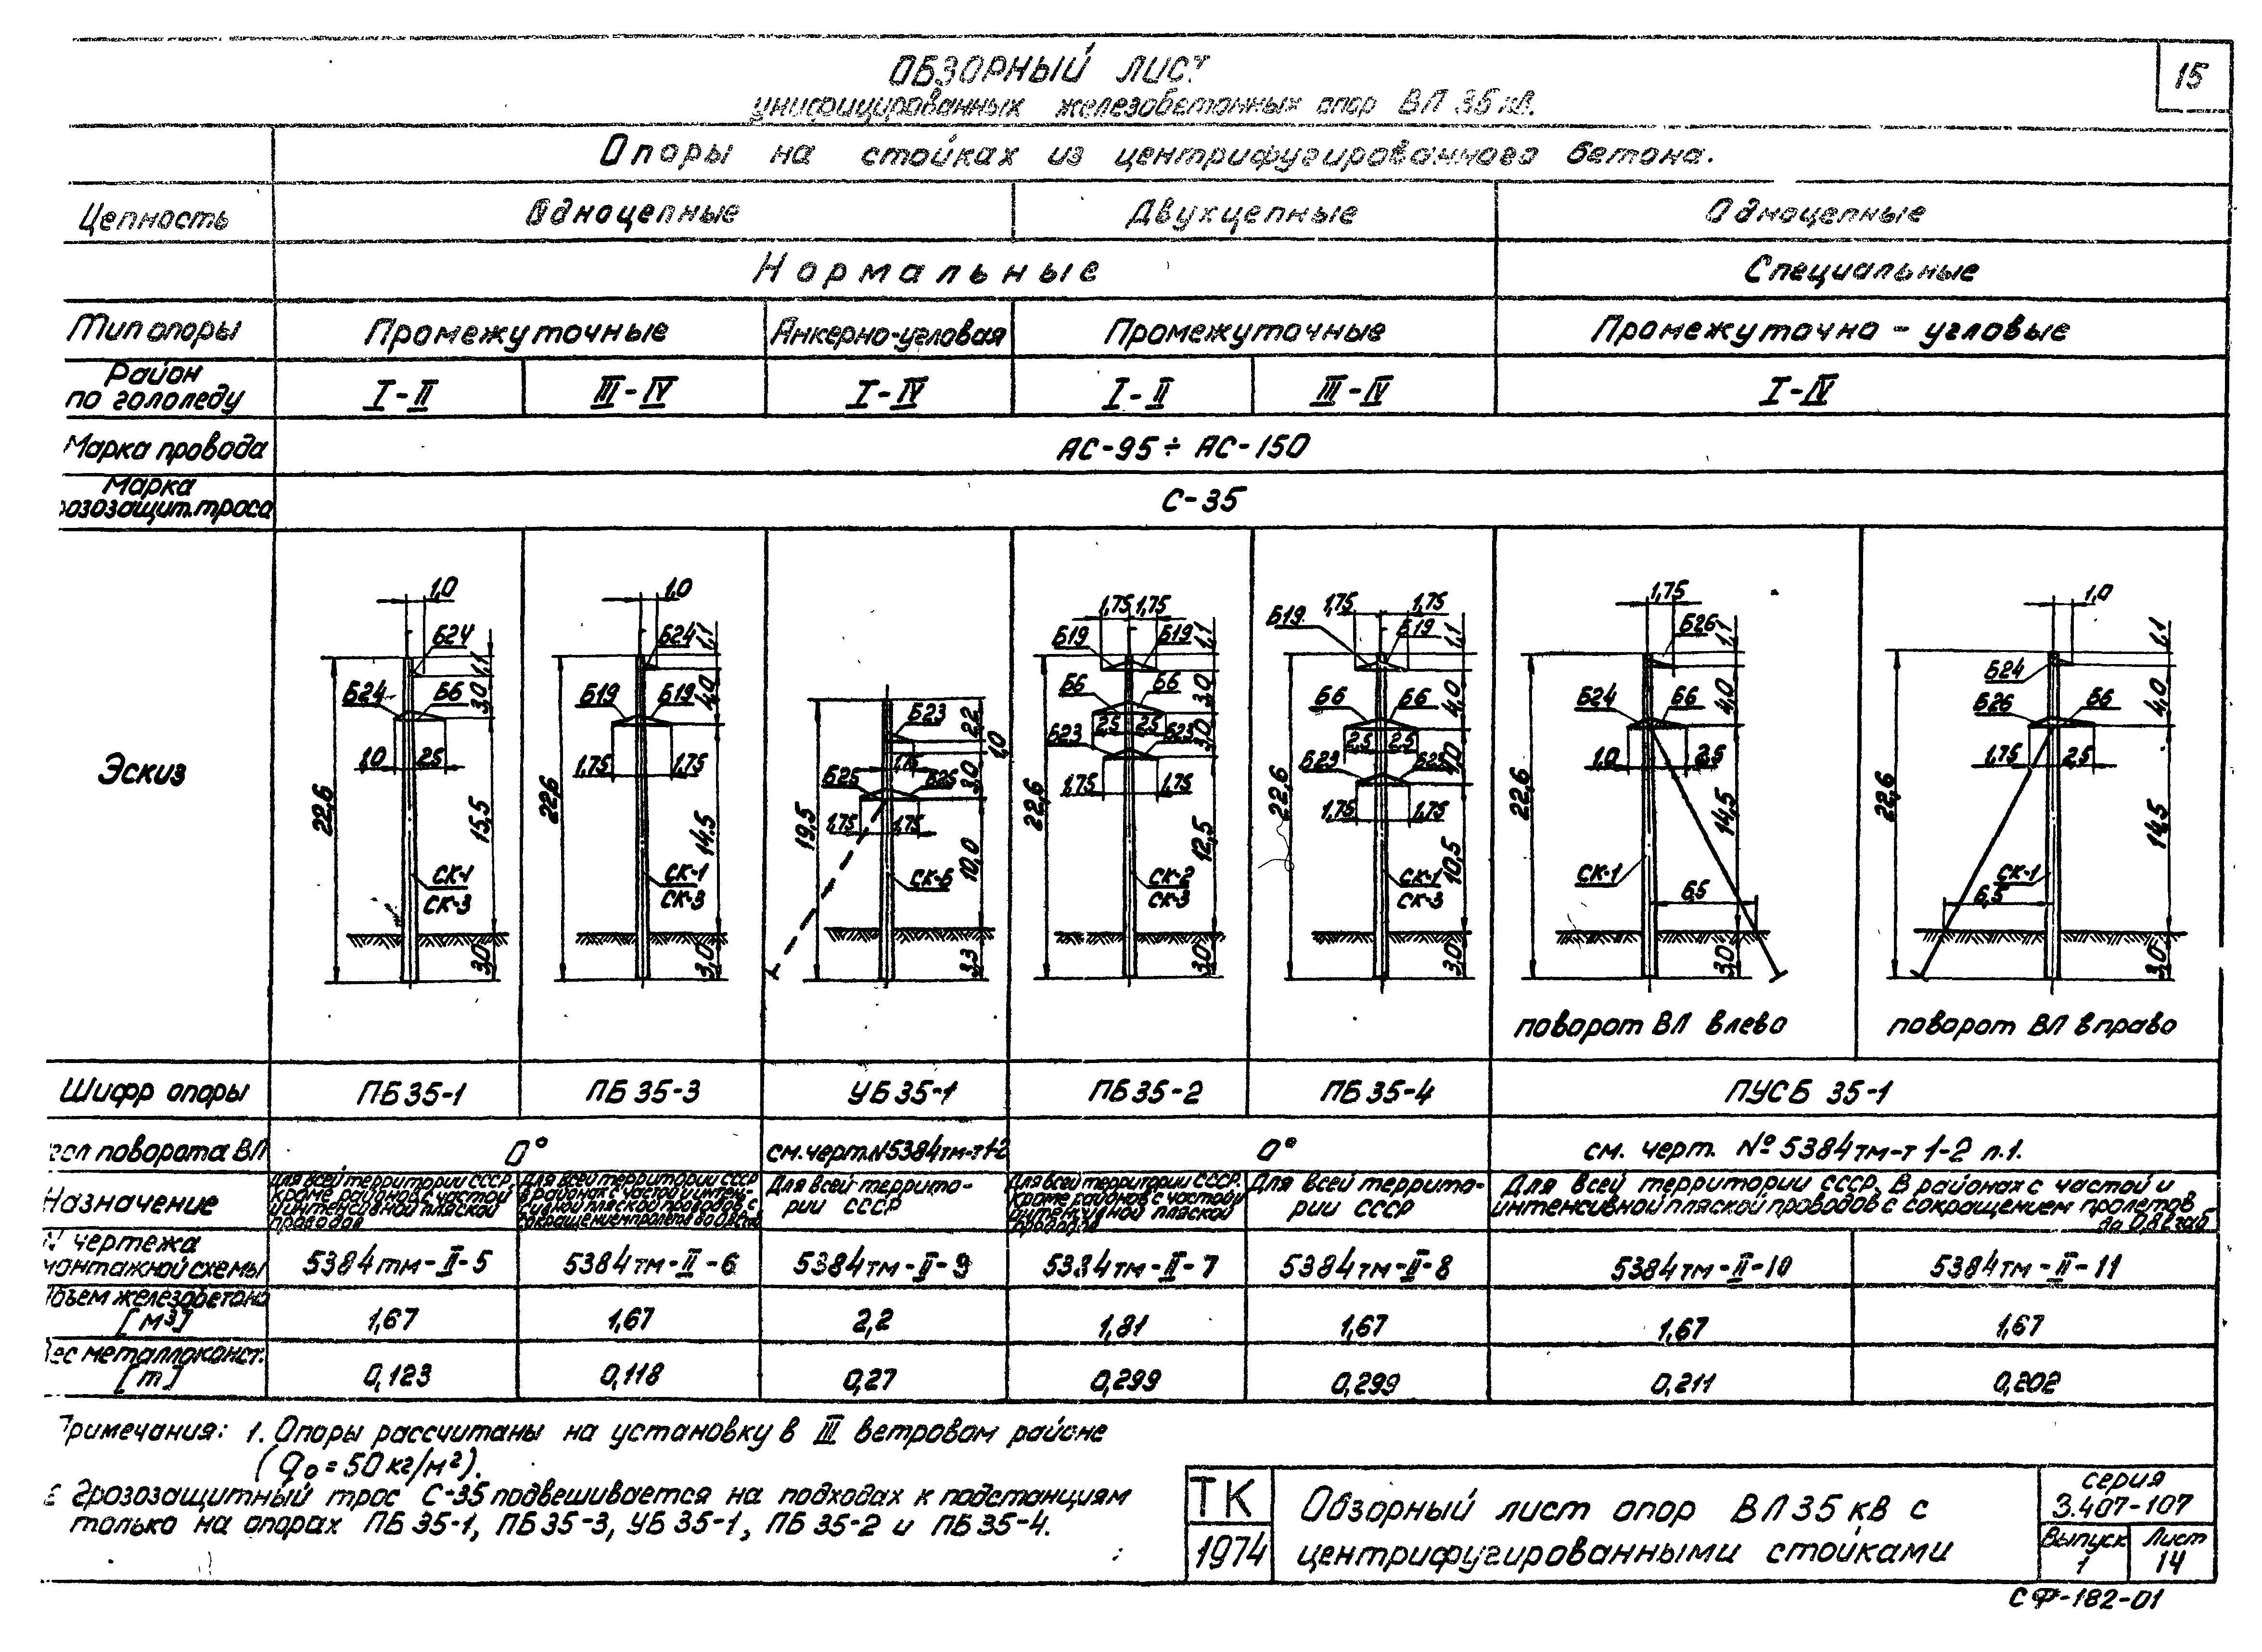 15
ОБЗОРНЫЙ ЛИСТ
унифицированных железобетонных опор ВЛ 35 кВ.
Опоры на стойках из центрифугированного бетона.
Цепность Одноцепные Двухцепные Одноцепные
Нормальные Специальные
Тип опоры Промежуточные Анкерно-угловая Промежуточные Промежуточно-угловые
Район
по гололеду I-II III-IV I-IV I-II III-IV I-IV
Марка провода АС-95÷АС-150
Марка
розозащит.троса С-35
Эскиз
1,0 Б24 1,1 3,0 Б24 Б6 1,0 2,5 22,6 15,5 СК-1 СК-3 3,0
1,0 Б24 1,1 4,0 Б19 Б19 1,75 1,75 22,6 14,5 СК-1 СК-3 3,0
Б23 2,2 1,0 1,75 3,0 Б25 Б25 1,75 1,75 19,5 10,0 3,3
1,75 1,75 Б19 Б19 1,1 3,0 Б6 Б6 2,5 2,5 3,0 Б23 Б23 1,75 1,75 22,6 12,5 СК-2 СК-3 3,0
1,75 1,75 Б19 Б19 1,1 4,0 Б6 Б6 2,5 2,5 Б23 1,75 1,75 22,6 10,5 СК-1 СК-3 3,0
1,75 Б26 1,1 4,0 Б24 Б6 1,0 2,5 22,6 14,5 СК-1 6,5 3,0
1,0 1,1 Б24 4,0 Б26 Б6 1,75 2,5 22,6 14,5 СК-1 6,5 3,0
поворот ВЛ влево поворот ВЛ вправо
Шифр опоры ПБ35-1 ПБ35-3 УБ35-1 ПБ35-2 ПБ35-4 ПУСБ 35-1
гол поворота ВЛ 0° см.черт.N5384тм-т1-2 0° см. черт. № 5384тм-т 1-2 л.1.
Назначение
Для всей территории СССР,
кроме районов с частой
и интенсивной пляской
проводов
Для всей территории СССР
в районах с частой и интен-
сивной пляской проводов с
сокращением пролета до
Для всей террито-
рии СССР
Для всей территории СССР,
кроме районов с частой и
интенсивной пляской
проводов
Для всей террито-
рии СССР
Для всей территории СССР. В районах с частой и
интенсивной пляской проводов с сокращением пролетов
до 0,8
N чертежа
монтажной схемы 5384тм-II-5 5384тм-II-6 5384тм-II-9 5384тм-II-7 5384тм-II-8 5384тм-II-10 5384тм-II-11
бъем железобетона
[м³] 1,67 1,67 2,2 1,81 1,67 1,67 1,67
ес металлоконст.
[т] 0,123 0,118 0,27 0,299 0,299 0,211 0,202
римечания: 1. Опоры рассчитаны на установку в III ветровом районе
(q₀=50кг/м²).
Грозозащитный трос С-35 подвешивается на подходах к подстанциям
только на опорах ПБ35-1, ПБ35-3, УБ35-1, ПБ35-2 и ПБ35-4.
ТК
1974
Обзорный лист опор ВЛ35 кВ с
центрифугированными стойками
серия
3.407-107
Выпуск
1
Лист
14
СФ-182-01